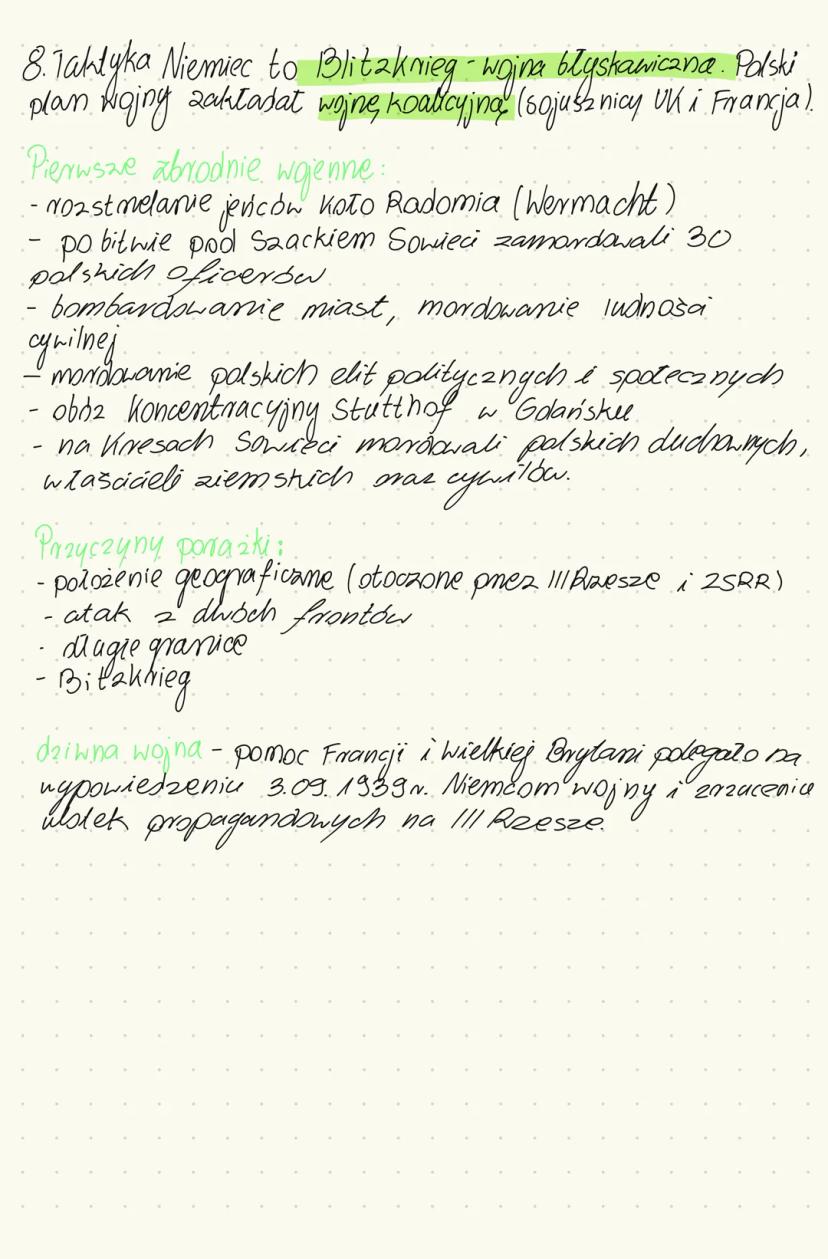 8. Taktyka Niemiec to Blitzkrieg - wojna błyskawiczna. Polski
plan wojny zakładał wojnę koalicyjną (sojusznicy UK i Francja).
Pierwsze zbrodnie wojenne:
- rozstrzelanie jeńców koło Radomia (Wermacht)
- po bitwie pod Szackiem Sowieci zamordowali 30
polskich oficerów
- bombardowanie miast, mordowanie ludności
cywilnej
- mordowanie polskich elit politycznych i społecznych
- obóz koncentracyjny Stutthof w Gdańsku
- na Kresach Sowieci mordowali polskich duchownych,
właścicieli ziemskich oraz cywilów.
Przyczyny porażki:
- położenie geograficzne (otoczone przez III Rzesze i ZSRR)
- atak z dwóch frontów
- długie granice
- Bitzkrieg
dziwna wojna - pomoc Francji i Wielkiej Brytani polegało na
wypowiedzeniu 3.09.1939r. Niemcom wojny i zrzucenie
ulotek propagandowych na III Rzesze.